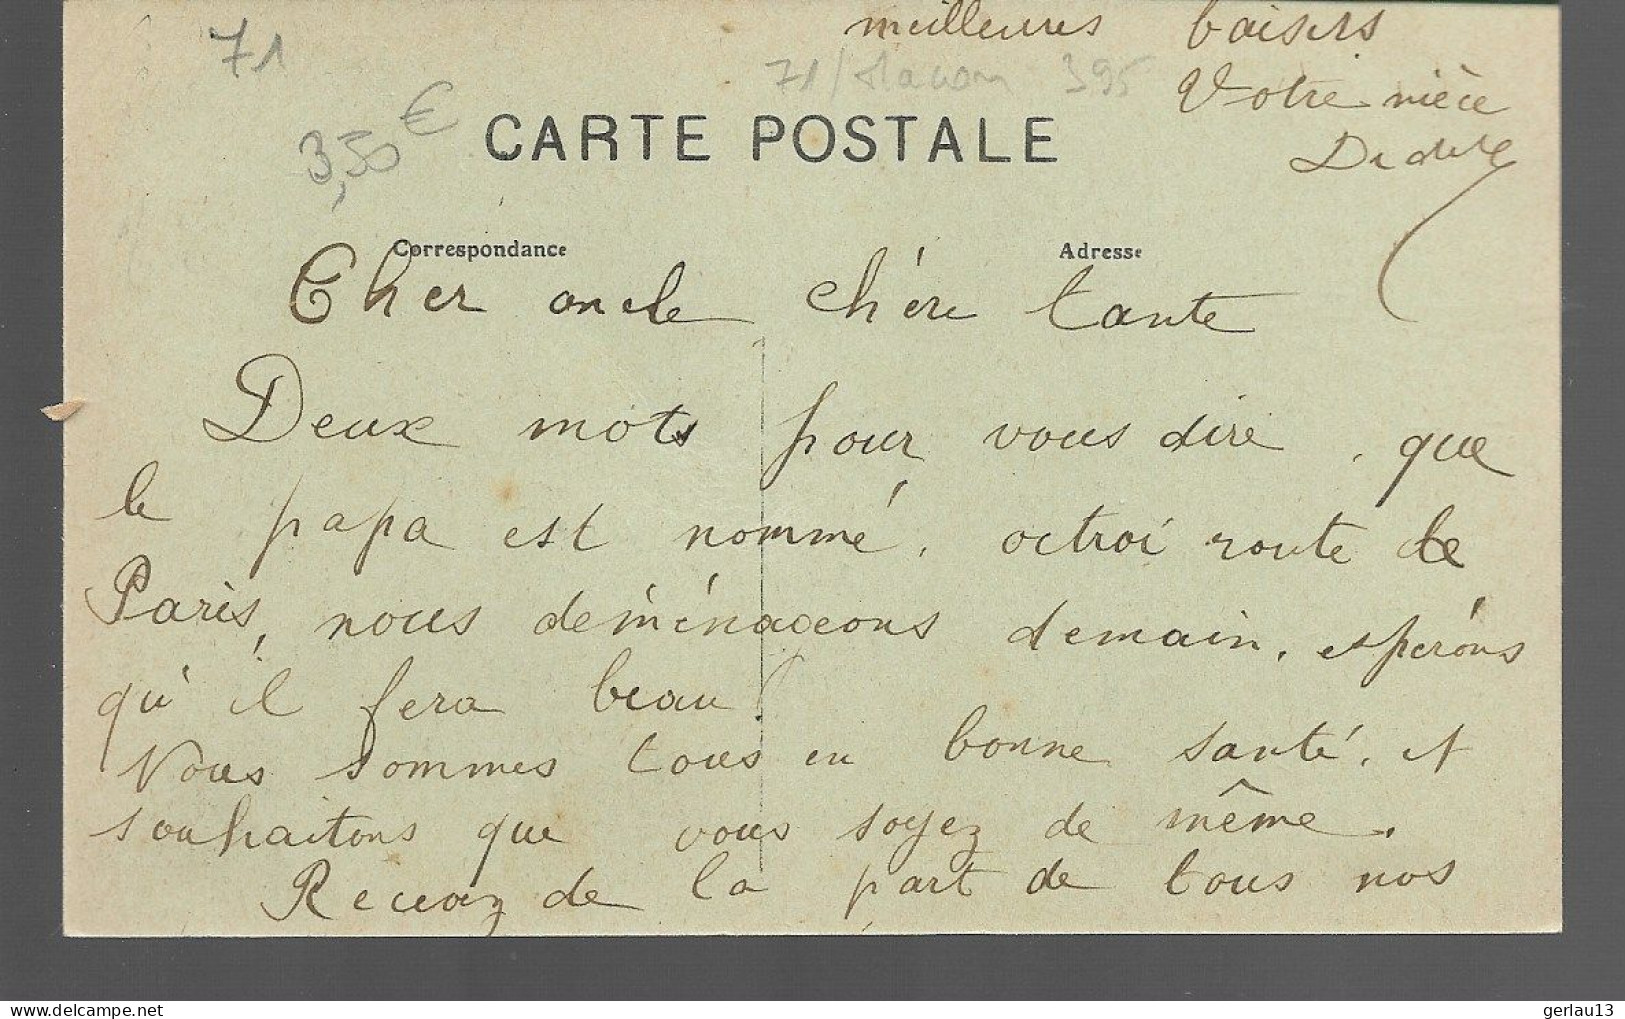 meilleures baisers
71
71/Macon 395
Votre nièce
3,50 €
CARTE POSTALE
Correspondance
Adresse
Cher oncle chére tante
Deux mots pour vous dire, que
le papa est nommé, octroi route de
Paris, nous déménageons demain, espérons
qu'il fera beau!
Nous sommes tous en bonne santé, et
souhaitons que vous soyez de même.
Recevez de la part de tous nos
gerlau13